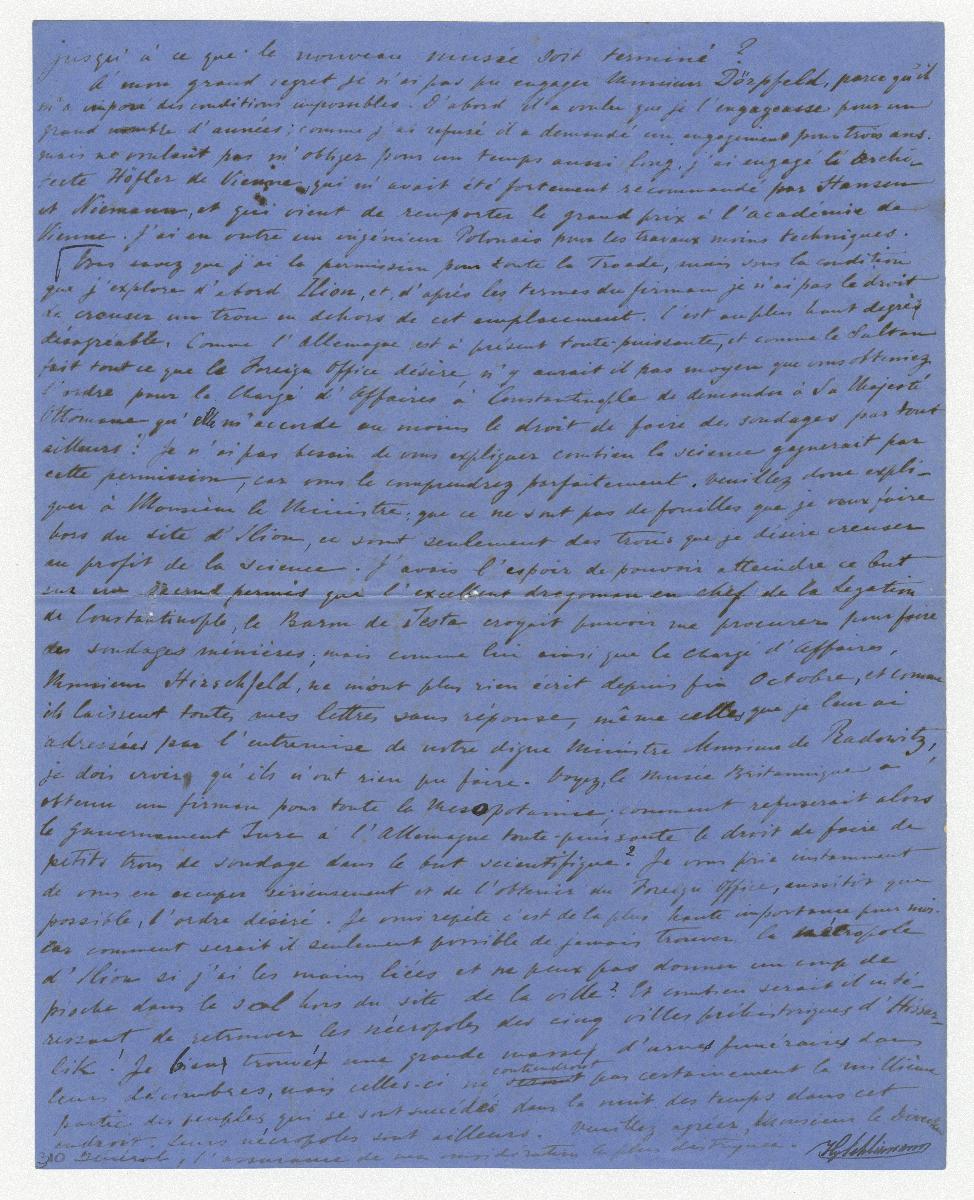 jusqu'à ce que le nouveau musée soit terminé?
A mon grand regret je n'ai pas pu engager Monsieur Dörpfeld, parce qu'il
m'a imposé des conditions impossibles. D'abord il a voulu que je l'engageasse pour un
grand nombre d'années; comme j'ai refusé il a demandé un engagement pour trois ans.
mais ne voulant pas m'obliger pour un temps aussi long, j'ai engagé l'archi-
tecte Höfler de Vienne, qui m'avait été fortement recommandé par Hansen
et Niemann, et qui vient de remporter le grand prix à l'académie de
Vienne. J'ai en outre un ingénieur Polonais pour les travaux moins techniques.
Vous savez que j'ai la permission pour toute la Troade, mais sous la condition
que j'explore d'abord Ilion, et, d'après les termes du firman je n'ai pas le droit
de creuser un trou en dehors de cet emplacement. C'est au plus haut degré
désagréable. Comme l'Allemagne est à présent toute-puissante, et comme le Sultan
fait tout ce que le Foreign Office désire, n'y aurait il pas moyen que vous obteniez
l'ordre pour le Chargé d'Affaires à Constantinople de demander à Sa Majesté
Ottomane qu'elle m'accorde au moins le droit de faire des sondages partout
ailleurs! Je n'ai pas besoin de vous expliquer combien la science gagnerait par
cette permission, car vous le comprendrez parfaitement. Veuillez donc expli-
quer à Monsieur le Ministre que ce ne sont pas de fouilles que je veux faire
hors du site d'Ilion, ce sont seulement des trous que je désire creuser
au profit de la science. J'avais l'espoir de pouvoir atteindre ce but
sur un permis que l'excellent dragoman en chef de la Légation
de Constantinople, le Baron de Testa croyait pouvoir me procurer pour faire
des sondages minières; mais comme lui ainsi que le chargé d'Affaires,
Monsieur Hirschfeld, ne m'ont plus rien écrit depuis fin Octobre, et comme
ils laissent toutes mes lettres sans réponse, même celles que je leur ai
adressées par l'entremise de notre digne Ministre Monsieur de Radowitz,
je dois croire qu'ils n'ont rien pu faire. Voyez, le Musée Britannique a
obtenu un firman pour toute la Mesopotamie; comment refuserait alors
le Gouvernement Turc à l'Allemagne toute-puissante le droit de faire de
petits trous de sondage dans le but scientifique? Je vous prie instamment
de vous en occuper sérieusement et de l'obtenir du Foreign Office, aussitôt que
possible, l'ordre désiré. Je vous répète c'est de la plus haute importance pour moi.
car comment serait il seulement possible de jamais trouver la nécropole
d'Ilion si j'ai les mains liées et ne peux pas donner un coup de
pioche dans le sol hors du site de la ville? Et combien serait il inté-
ressant de retrouver les nécropoles des cinq villes préhistoriques d'Hissar-
lik! Je bien trouvé une grande masse d'urnes funéraires dans
leurs décombres, mais celles-ci ne contiendront pas certainement la millième
partie des peuples qui se sont succédés dans la nuit des temps dans cet
endroit. Leurs nécropoles sont ailleurs. Veuillez agréer, Monsieur le Directeur
310 Général, l'assurance de ma considération la plus distinguée. Hy Schliemann